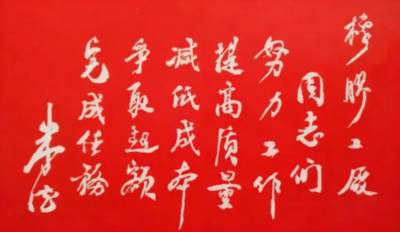 橡胶工厂
同志们
努力工作
提高质量
减低成本
争取超额
完成任务
朱德